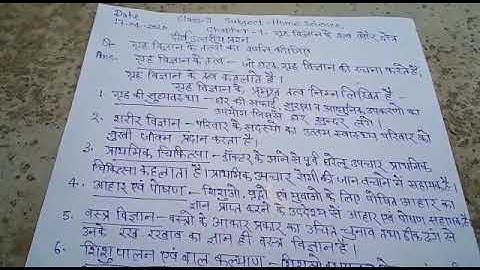 Date
17-04-2020 Class-9 Subject-Home Science
Chapter-1 गृह विज्ञान के तत्व और क्षेत्र
दीर्घ उत्तरीय प्रश्न
गृह विज्ञान के तत्वों का वर्णन कीजिये
Ans: गृह विज्ञान के तत्व - जो घटक गृह विज्ञान की रचना करते हैं,
गृह विज्ञान के तत्व कहलाते हैं।
गृह विज्ञान के प्रमुख तत्व निम्न लिखित हैं -
1. गृह की सुव्यवस्था - घर की सफाई, सुरक्षा व आधुनिक उपकरणो का
उपयोग जिससे घर सुन्दर लगे।
2. शरीर विज्ञान - परिवार के सदस्यों का उत्तम स्वास्थ्य परिवार को
सुखी जीवन प्रदान करता है।
3. प्राथमिक चिकित्सा - डॉक्टर के आने से पूर्व घरेलू उपचार प्राथमिक
चिकित्सा कहलाता है। प्राथमिक उपचार रोगी की जान बचाने में सहायक है।
4. आहार एवं पोषण - शिशुओं, वृद्धों एवं युवाओ के लिए पोषित आहार का
ज्ञान प्राप्त करने के उद्देश्य से आहार एवं पोषण सहायक है
5. वस्त्र विज्ञान - वस्त्रो के आकार प्रकार का उचित चुनाव तथा ठीक ढंग से
उनके रख-रखाव का ज्ञान ही वस्त्र विज्ञान है।
6. शिशु पालन एवं बाल कल्याण -